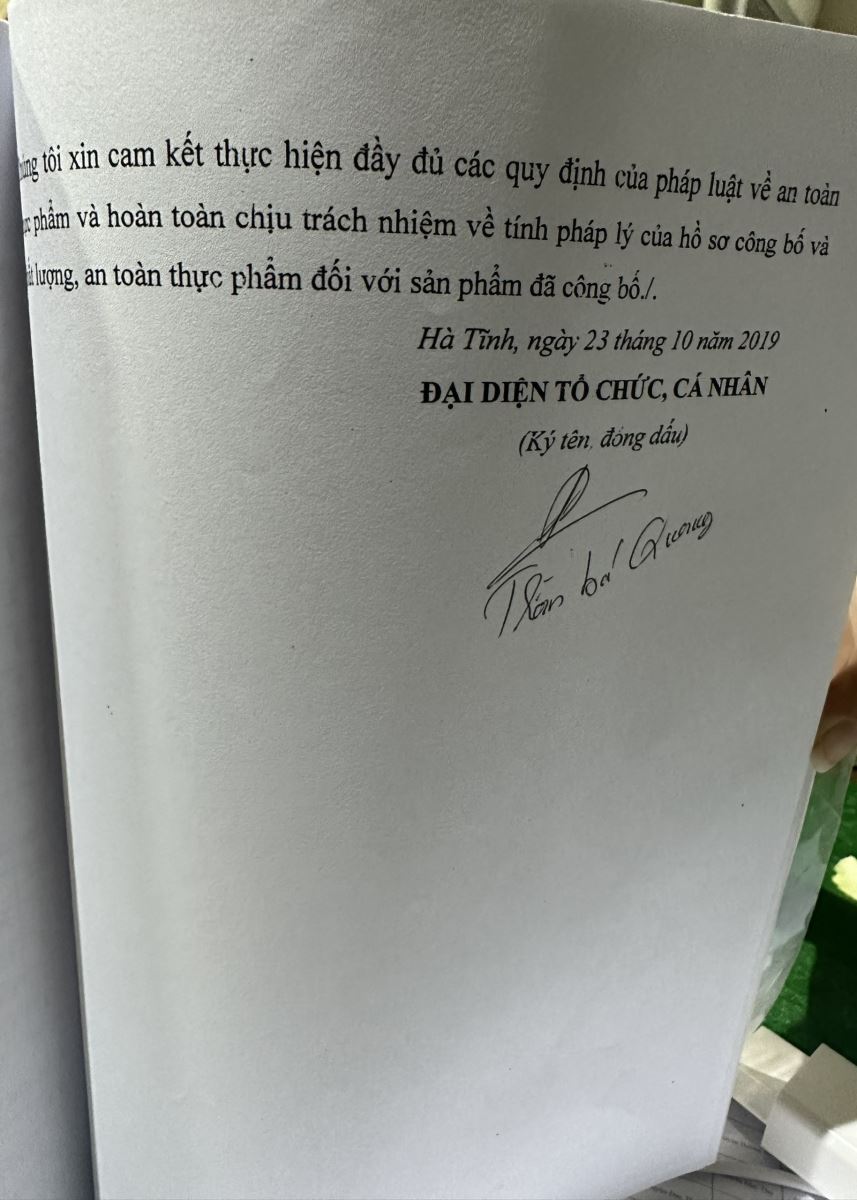 tôi xin cam kết thực hiện đầy đủ các quy định của pháp luật về an toàn
phẩm và hoàn toàn chịu trách nhiệm về tính pháp lý của hồ sơ công bố và
lượng, an toàn thực phẩm đối với sản phẩm đã công bố./.
Hà Tĩnh, ngày 23 tháng 10 năm 2019
ĐẠI DIỆN TỔ CHỨC, CÁ NHÂN
(Ký tên, đóng dấu)
bá